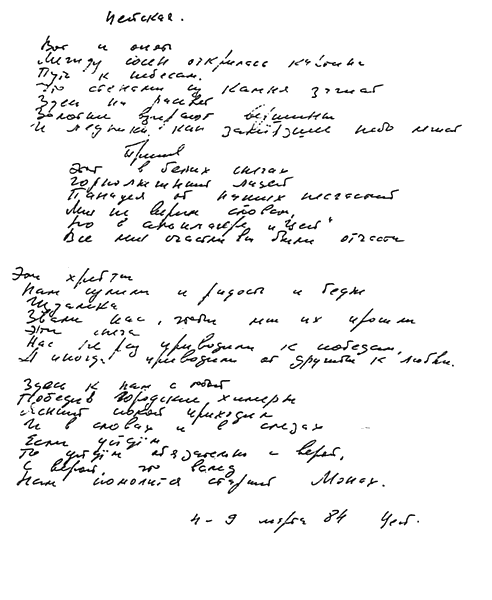 Цейская.
Вот и опять
Между сосен открылась картина
Путь к небесам.
Это стенами из камня зажат
Здесь на рассвет
Золотые взирают вершины
И ледники, как застывшее небо лежат
Припев
Этот в белых снегах
Горнолыжный лицей
Панацея от наших несчастий
Мы не верим словам,
Но в альплагере „Цей"
Все мы счастливы были отчасти
Эти хребты
Нам сулили и радость и беды
Издалека
Звали нас, чтобы мы их прошли
Эти снега
Нас не раз приводили к победам,
А иногда приводили от дружбы к любви.
Здесь к нам с тобой
Победив городские химеры
Лыжный покой приходил
И в словах и в слезах
Если уйдём
То уйдём обязательно с верой,
С верой, что вслед
Нам помолится старый Монах.
4 - 9 марта 84 Цей.